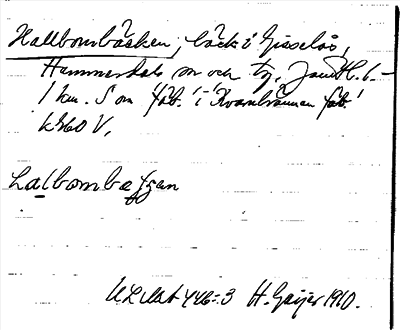 Hallbombäcken, bäck i Gisselås,
Hammerdals sn och tg, Jämtl. l. –
1 km. S om fäb. i Kvarnbrännan fäb.
k 460 V,
Lalbombaffan
ULMA 446:3 H. Geijer 1910.